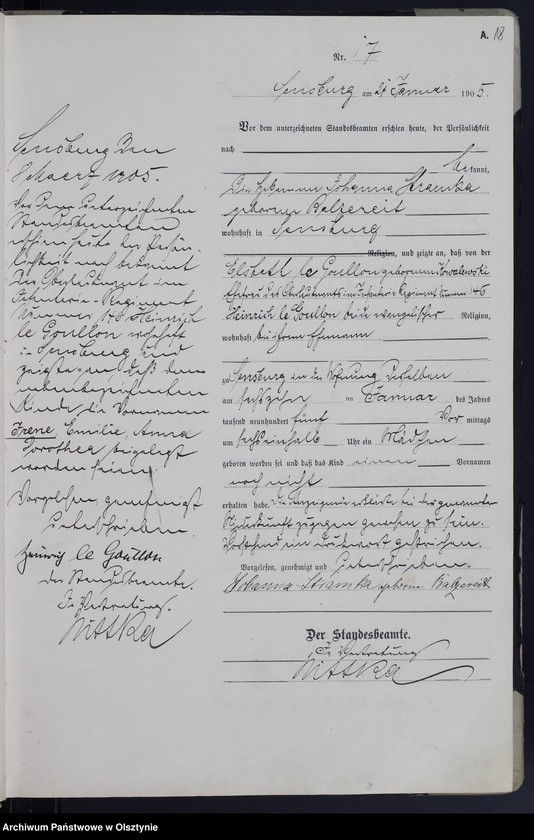 A. 18
Nr. 17
Sensburg am 21 Januar 1905.
Vor dem unterzeichneten Standesbeamten erschien heute, der Persönlichkeit
nach bekannt,
Die Hebamme Johanna Stramka
geborene Balzereit
wohnhaft in Sensburg
Religion, und zeigte an, daß von der
Elsbeth le Goullon geborenen Kowalewski
Ehefrau des Oberleutnants im Infanterie Regiment Nummer 146
Heinrich le Goullon beide evangelischer Religion,
wohnhaft bei ihrem Ehemann
zu Sensburg in der Wohnung desselben
am sechszehn im Januar des Jahres
tausend neunhundert fünf Vor mittags
um sechseinhalb Uhr ein Mädchen
geboren worden sei und daß das Kind einen Vornamen
noch nicht
erhalten habe. Die Anzeigende erklärte bei der genannten
Niederkunft zugegen gewesen zu sein.
Vorstehend ein Druckwort gestrichen.
Vorgelesen, genehmigt und unterschrieben.
Johanna Stramka geborene Balzereit
Der Standesbeamte.
In Vertretung
Nittka
Sensburg den
8 Maerz 1905.
Vor dem unterzeichneten
Standesbeamten
erschien heute der Persön-
lichkeit nach bekannt
Der Oberleutnant im
Infanterie-Regiment
Nummer 146 Heinrich
le Goullon wohnhaft
in Sensburg und
zeigte an, daß dem
nebenbezeichneten
Kinde die Vornamen
Irene Emilie, Anna
Dorothea beigelegt
worden seien.
Vorgelesen, genehmigt
unterschrieben.
Heinrich le Goullon
Der Standesbeamte.
In Vertretung.
Nittka
Archiwum Państwowe w Olsztynie